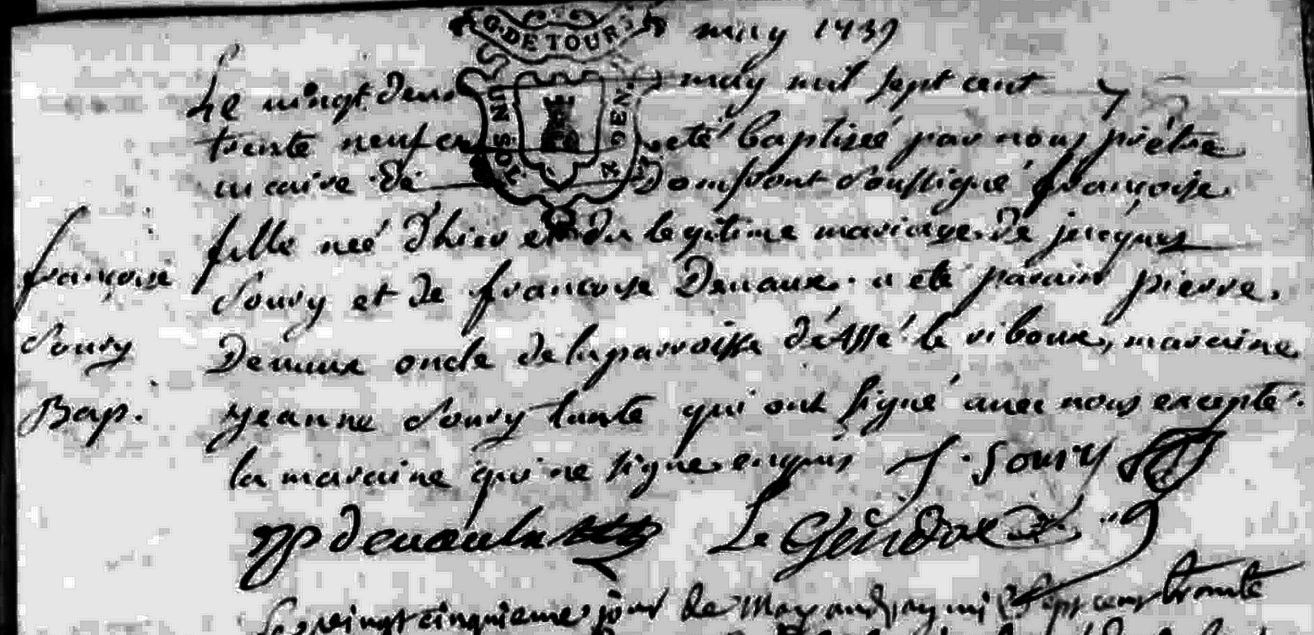 G. DE TOURS
may 1739
Le vingt deux may mil sept cent
trente neuf eté baptizée par nous prêtre
vicaire de Domfront soussigné françoise
fille neé d'hier et du legitime mariage de jacques
Soury et de francoise Devaux. a eté parain pierre
Devaux oncle de la paroisse d'Assé le riboux, maraine
yeanne Soury tante qui ont signé avec nous excepté
la maraine qui ne signe enquis J. Soury
françoise
Soury
Bap.
p devaulx Le Gendre
Le vingt cinquieme jour de May mil sept cent trente